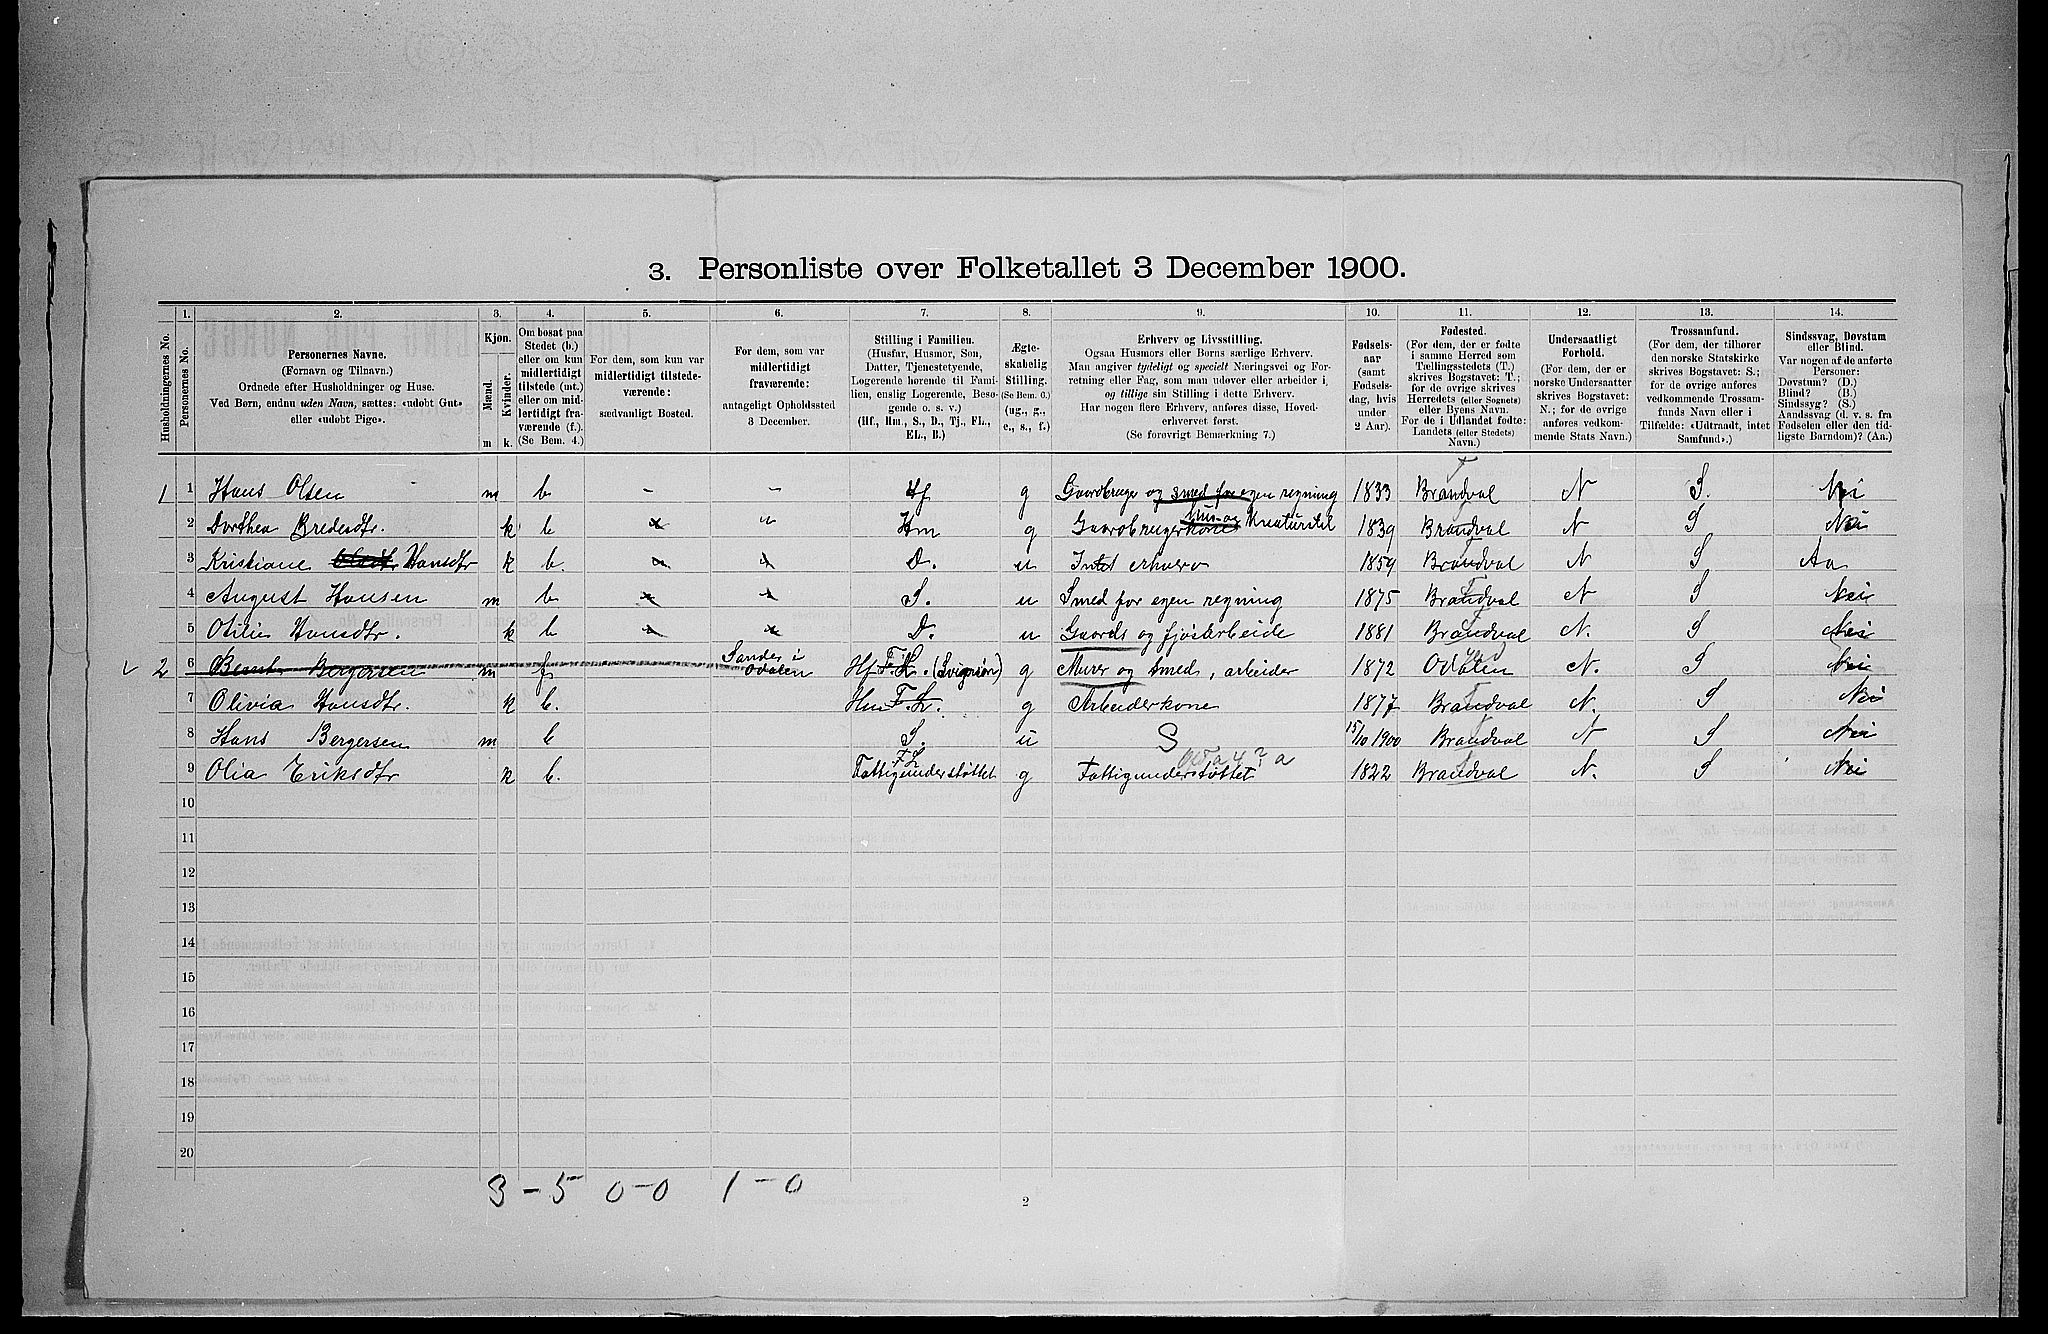 3. Personliste over Folketallet 3 December 1900.
Husholdningernes No.
1.
Personernes No.
2.
Personernes Navne.
(Fornavn og Tilnavn.)
Ordnede efter Husholdninger og Huse.
Ved Børn, endnu uden Navn, sættes: «udøbt Gut»
eller «udøbt Pige».
3.
Kjøn.
Mænd.
Kvinder.
m
k.
4.
Om bosat paa
Stedet (b.)
eller om kun
midlertidigt
tilstede (mt.)
eller om mid-
lertidigt fra-
værende (f.).
(Se Bem. 4.)
5.
For dem, som kun var
midlertidigt tilstede-
værende:
sædvanligt Bosted.
6.
For dem, som var
midlertidigt
fraværende:
antageligt Opholdssted
3 December.
7.
Stilling i Familien.
(Husfar, Husmor, Søn,
Datter, Tjenestetyende,
Logerende hørende til Fami-
lien, enslig Logerende, Besø-
gende o. s. v.)
(Hf., Hm., S., D., Tj., FL.,
EL., B.)
8.
Ægte-
skabelig
Stilling.
(Se Bem. 6.)
(ug., g.,
e., s., f.)
9.
Erhverv og Livsstilling.
Ogsaa Husmors eller Børns særlige Erhverv.
Man angiver tydeligt og specielt Næringsvei og For-
retning eller Fag, som man udøver eller arbeider i,
og tillige sin Stilling i dette Erhverv.
Har nogen flere Erhverv, anføres disse, Hoved-
erhvervet først.
(Se forøvrigt Bemærkning 7.)
10.
Fødsels-
aar
(samt
Fødsels-
dag, hvis
under
2 Aar).
11.
Fødested.
(For dem, der er fødte
i samme Herred som
Tællingsstedets (T.)
skrives Bogstavet: T.;
for de øvrige skrives
Herredets (eller Sognets)
eller Byens Navn.
For de i Udlandet fødte:
Landets (eller Stedets)
Navn.)
12.
Undersaatligt
Forhold.
(For dem, der er
norske Undersaatter
skrives Bogstavet:
N.; for de øvrige
anføres vedkom-
mende Stats Navn.)
13.
Trossamfund.
(For dem, der tilhører
den norske Statskirke
skrives Bogstavet: S.;
for de øvrige anføres
vedkommende Trossam-
funds Navn eller i
Tilfælde: «Udtraadt, intet
Samfund».)
14.
Sindssvag, Døvstum
eller Blind.
Var nogen af de anførte
Personer:
Døvstum? (D.)
Blind? (B.)
Sindssyg? (S.)
Aandssvag (d. v. s. fra
Fødselen eller den tid-
ligste Barndom)? (Aa.)
1 1 Hans Olsen m b - - Hf g Gaardbruger og smed for egen regning 1833 T Brandval N S. Nei
2 Dorthea Bredesdtr. k b " Hm g Gaardbrugerkone Hus og Kreaturstel 1839 T Brandval N S Nei
3 Kristiane Hansdtr k b. D. u Intet erhverv 1859 T Brandval N S Aa
4 August Hansen m b S. u Smed for egen regning 1875 T Brandval N S Nei
5 Otilie Hansdtr. k b D. u Gaards og fjøsarbeide 1881 T Brandval N. S Nei
2 6 Bernt Bergersen m f Sander i Odalen Hf F.L. g Murer og smed, arbeider 1872 Odalen N. S Nei
7 Olivia Hansdtr. k b. Hm F.L. g Arbeiderkone 1877 T Brandval N. S Nei
8 Hans Bergersen m b S. u S 15/10 1900 T Brandval N S Nei
9 Olia Eriksdtr k b. FL Fattigunderstøttet g Fattigunderstøttet 1822 T Brandval N. S Nei
10
11
12
13
14
15
16
17
18
19
20
3 - 5 0 - 0 1 - 0
2